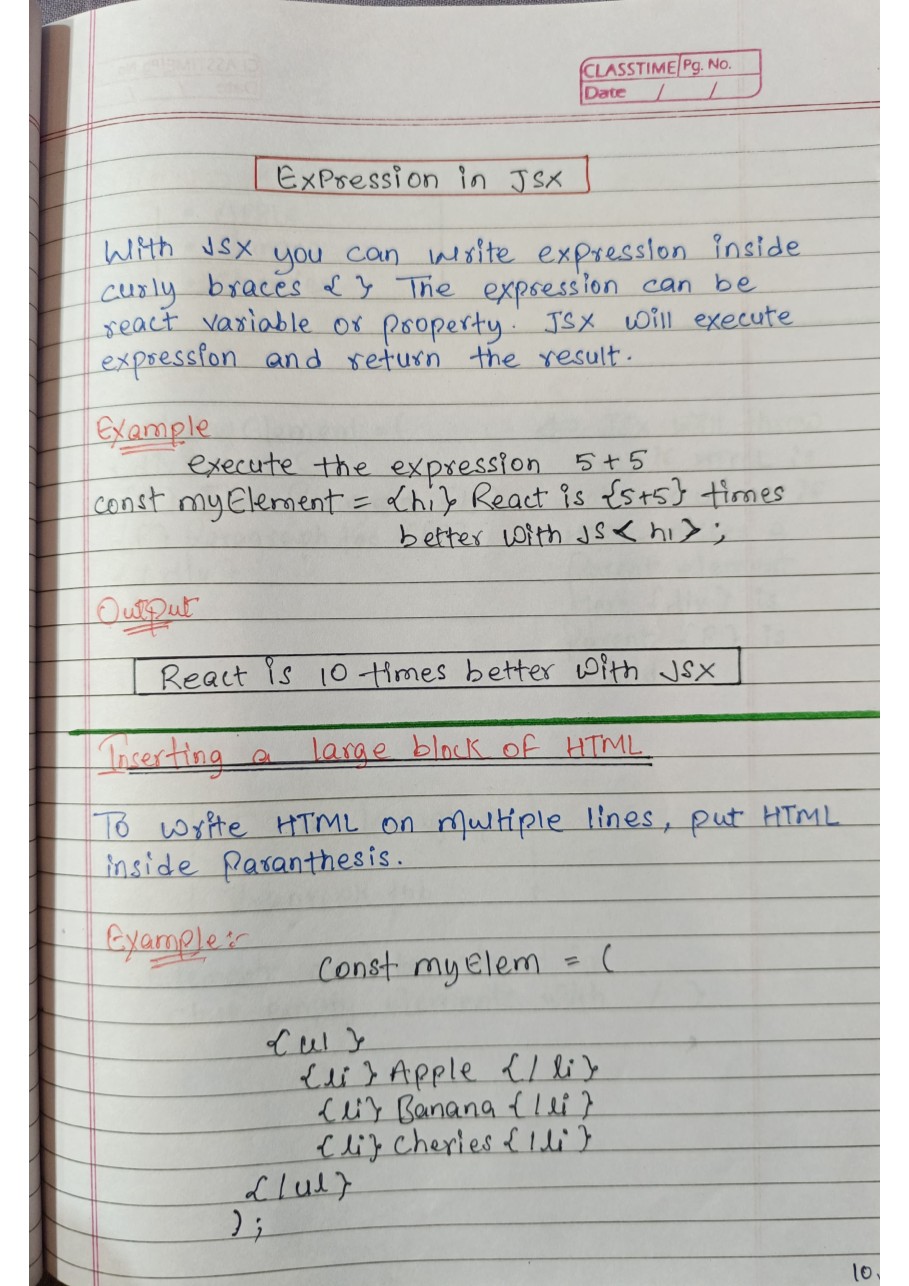 CLASSTIME Pg. No.
Date / /
Expression in JSX
With JSX you can write expression inside
curly braces { } The expression can be
react variable or property. JSX will execute
expression and return the result.
Example
execute the expression 5+5
const myElement = {hi} React is {5+5} times
better with JS < hi > ;
Output
React is 10 times better with JSX
Inserting a large block of HTML
To write HTML on multiple lines, put HTML
inside Paranthesis.
Example :-
Const myElem = (
{ ul }
{ li } Apple { / li }
{ li } Banana { / li }
{ li } Cheries { / li }
{ / ul }
) ;
10.